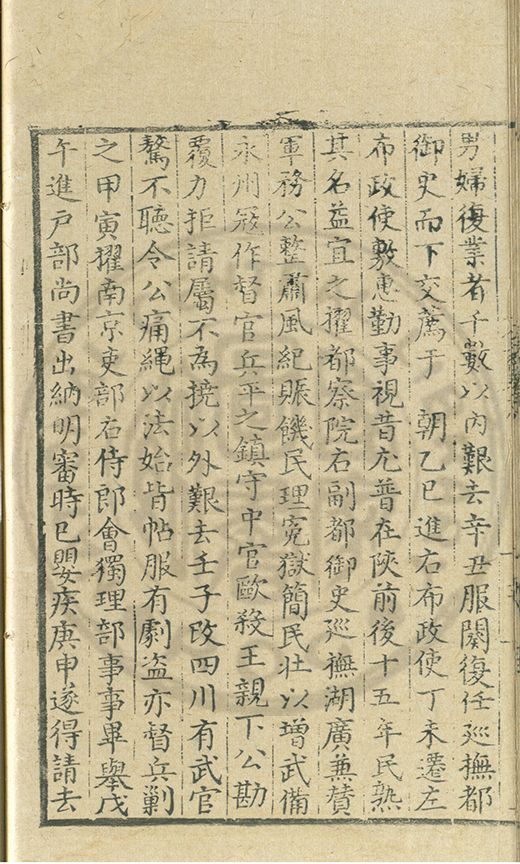 男婦復業者千數以内艱去辛丑服闋復任廵撫都
御史而下交薦于　朝乙巳進右布政使丁未遷左
布政使敷惠勤事視昔尤普在陜前後十五年民熟
其名益宜之擢都察院右副都御史廵撫湖廣兼賛
軍務公整肅風紀賑饑民理寃獄簡民壯以增武備
永州冦作督官兵平之鎮守中官歐殺王親下公勘
覆力拒請屬不為撓以外艱去壬子改四川有武官
驁不聽令公痛䋲以法始皆帖服有劇盗亦督兵剿
之甲寅擢南京吏部右侍郎會獨理部事事畢舉戊
午進戶部尚書出納明審時已嬰疾庚申遂得請去